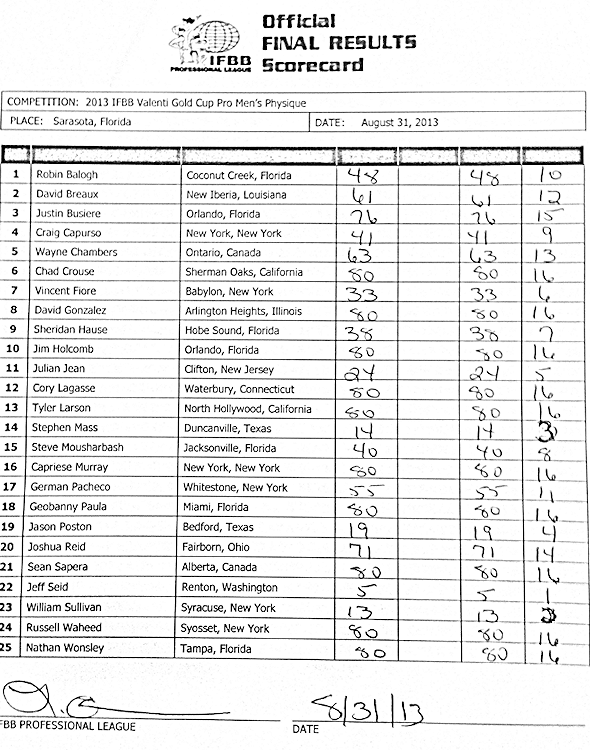 Official
FINAL RESULTS
Scorecard
IFBB
PROFESSIONAL LEAGUE
COMPETITION: 2013 IFBB Valenti Gold Cup Pro Men's Physique
PLACE: Sarasota, Florida DATE: August 31, 2013
1 Robin Balogh Coconut Creek, Florida 48 48 10
2 David Breaux New Iberia, Louisiana 61 61 12
3 Justin Busiere Orlando, Florida 76 76 15
4 Craig Capurso New York, New York 41 41 9
5 Wayne Chambers Ontario, Canada 63 63 13
6 Chad Crouse Sherman Oaks, California 80 80 16
7 Vincent Fiore Babylon, New York 33 33 6
8 David Gonzalez Arlington Heights, Illinois 80 80 16
9 Sheridan Hause Hobe Sound, Florida 38 38 7
10 Jim Holcomb Orlando, Florida 80 80 16
11 Julian Jean Clifton, New Jersey 24 24 5
12 Cory Lagasse Waterbury, Connecticut 80 80 16
13 Tyler Larson North Hollywood, California 80 80 16
14 Stephen Mass Duncanville, Texas 14 14 3
15 Steve Mousharbash Jacksonville, Florida 40 40 8
16 Capriese Murray New York, New York 80 80 16
17 German Pacheco Whitestone, New York 55 55 11
18 Geobanny Paula Miami, Florida 80 80 16
19 Jason Poston Bedford, Texas 19 19 4
20 Joshua Reid Fairborn, Ohio 71 71 14
21 Sean Sapera Alberta, Canada 80 80 16
22 Jeff Seid Renton, Washington 5 5 1
23 William Sullivan Syracuse, New York 13 13
24 Russell Waheed Syosset, New York 80 80 16
25 Nathan Wonsley Tampa, Florida 80 80 16
8/31/13
FBB PROFESSIONAL LEAGUE DATE